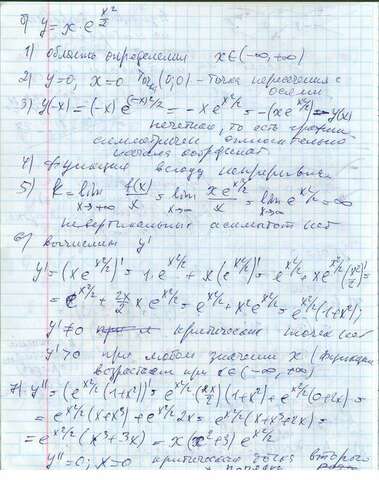 б) y = x · e^(x²/2)
1) область определения x∈(-∞,+∞)
2) y=0, x=0 Точ. (0;0) - точка пересечения с
осями
3) y(-x) = (-x)e^((-x)²/2) = -x e^(x²/2) = -(x e^(x²/2)) = -y(x)
нечетная, то есть график
симметричен относительно
начала координат
4) Функция всюду непрерывна
5) K = lim x→+∞ f(x)/x = lim x→∞ x e^(x²/2)/x = lim x→∞ e^(x²/2) = ∞
невертикальных асимптот нет
6) вычислим y'
y' = (x e^(x²/2))' = 1·e^(x²/2) + x(e^(x²/2))' = e^(x²/2) + x e^(x²/2)(x²/2)' =
= e^(x²/2) + 2x/2 x·e^(x²/2) = e^(x²/2) + x² e^(x²/2) = e^(x²/2)(1+x²)
y' ≠ 0 критических точек нет
y' > 0 при любом значении x (функция
возрастает при x∈(-∞,+∞)
7) y'' = (e^(x²/2)(1+x²))' = e^(x²/2)(2x/2)(1+x²) + e^(x²/2)(0+2x) =
= e^(x²/2)(x+x³) + e^(x²/2) 2x = e^(x²/2)(x+x³+2x) =
= e^(x²/2)(x³+3x) = x(x²+3) e^(x²/2)
y'' = 0; x=0 критическая точка второго